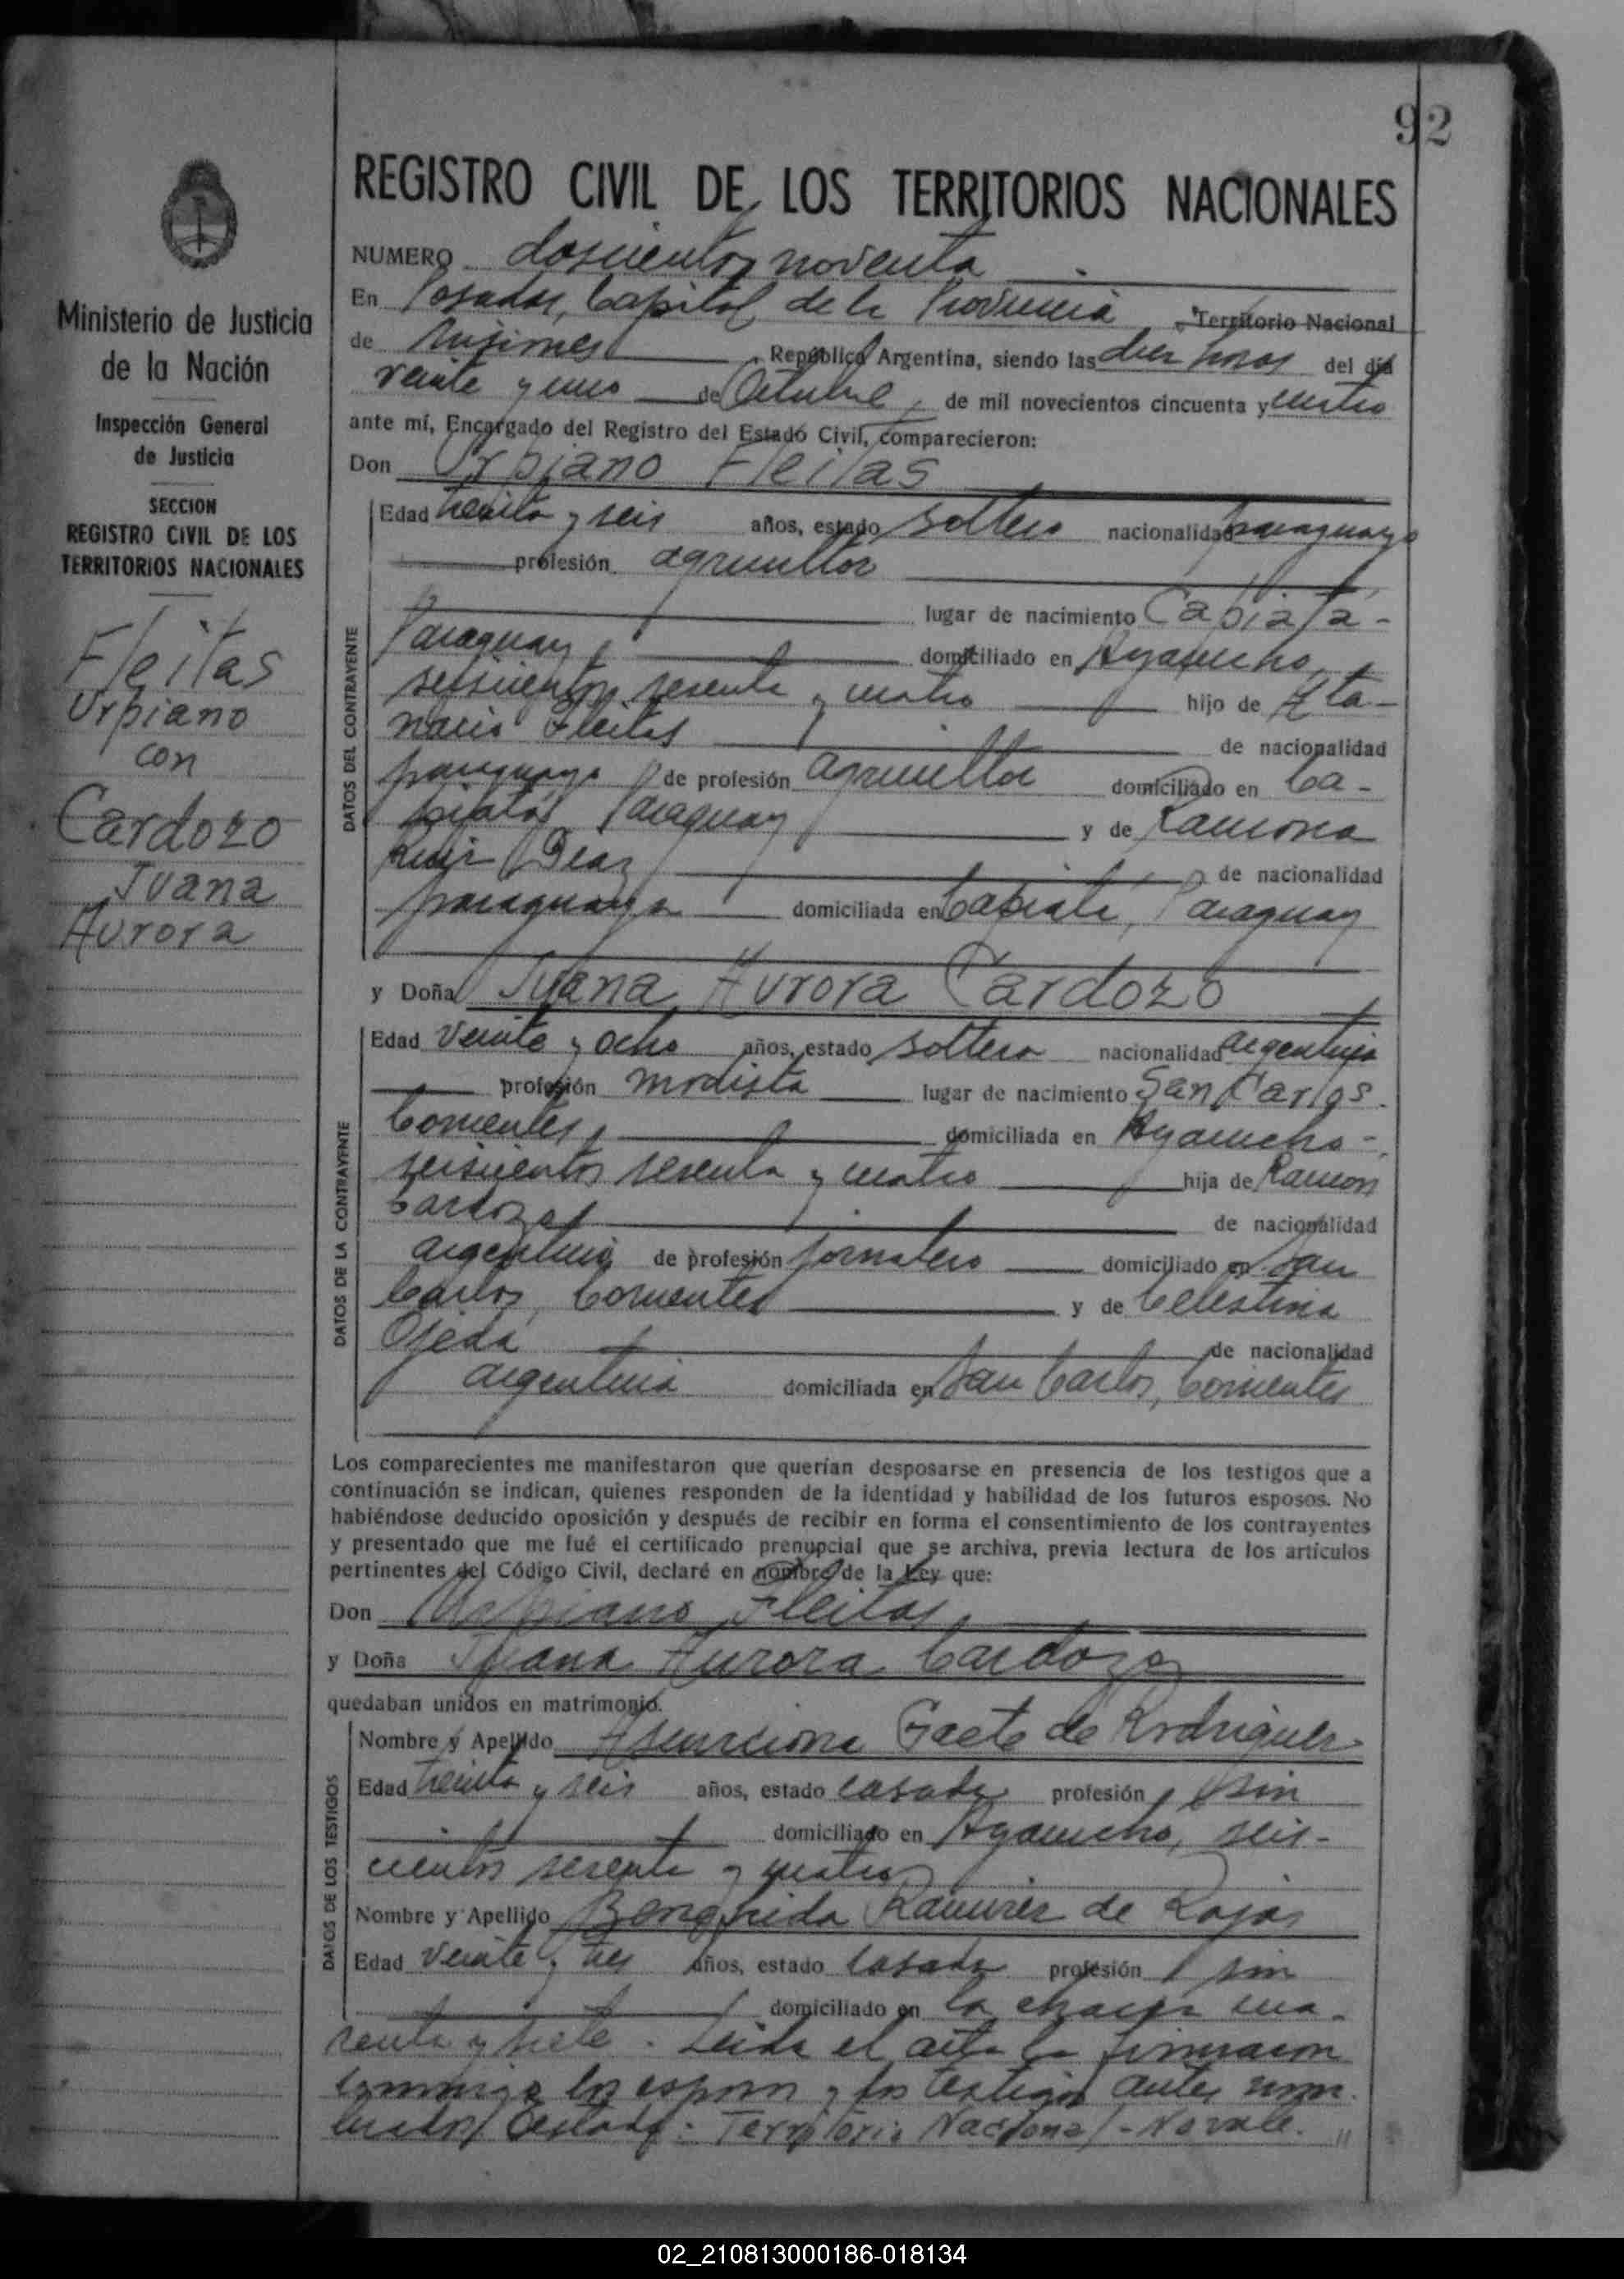 92
Ministerio de Justicia
de la Nación
Inspección General
de Justicia
SECCION
REGISTRO CIVIL DE LOS
TERRITORIOS NACIONALES
Fleitas
Urpiano
con
Cardozo
Juana
Aurora
REGISTRO CIVIL DE LOS TERRITORIOS NACIONALES
NUMERO doscientos noventa
En Posadas, Capital de la Provincia Territorio Nacional
de Misiones República Argentina, siendo las diez horas del día
veinte y uno de Octubre, de mil novecientos cincuenta y cuatro
ante mí, Encargado del Registro del Estado Civil, comparecieron:
Don Urpiano Fleitas
DATOS DEL CONTRAYENTE
Edad treinta y seis años, estado soltero nacionalidad paraguayo
profesión agricultor
lugar de nacimiento Capiatá-
Paraguay, domiciliado en Ayacucho,
seiscientos sesenta y cuatro hijo de Ata-
nacio Fleitas de nacionalidad
paraguaya de profesión agricultor domiciliado en Ca-
piatá, Paraguay y de Ramona
Ruiz Diaz de nacionalidad
paraguaya domiciliada en Capiatá, Paraguay
y Doña Juana Aurora Cardozo
DATOS DE LA CONTRAYENTE
Edad veinte y ocho años, estado soltera nacionalidad argentina
profesión modista lugar de nacimiento San Carlos.
Corrientes, domiciliada en Ayacucho-
seiscientos sesenta y cuatro hija de Ramon
Cardozo de nacionalidad
argentina de profesión jornalero domiciliado en San
Carlos, Corrientes y de Celestina
Ojeda de nacionalidad
argentina domiciliada en San Carlos, Corrientes
Los comparecientes me manifestaron que querían desposarse en presencia de los testigos que a
continuación se indican, quienes responden de la identidad y habilidad de los futuros esposos. No
habiéndose deducido oposición y después de recibir en forma el consentimiento de los contrayentes
y presentado que me fué el certificado prenupcial que se archiva, previa lectura de los artículos
pertinentes del Código Civil, declaré en nombre de la Ley que:
Don Urpiano Fleitas,
y Doña Juana Aurora Cardozo
quedaban unidos en matrimonio.
DATOS DE LOS TESTIGOS
Nombre y Apellido Asunciona Gaete de Rodriguez
Edad treinta y seis años, estado casada profesión sin
domiciliado en Ayacucho, seis-
cientos sesenta y cuatro
Nombre y Apellido Ramirez de Rojas
Edad veinte y tres años, estado casada profesión sin
domiciliado en la chacra cua-
renta y siete. Leida el acta la firmaron
conmigo los esposos y los testigos antes nom-
brados. Testado: Territorio Nacional-No vale.
02_210813000186-018134